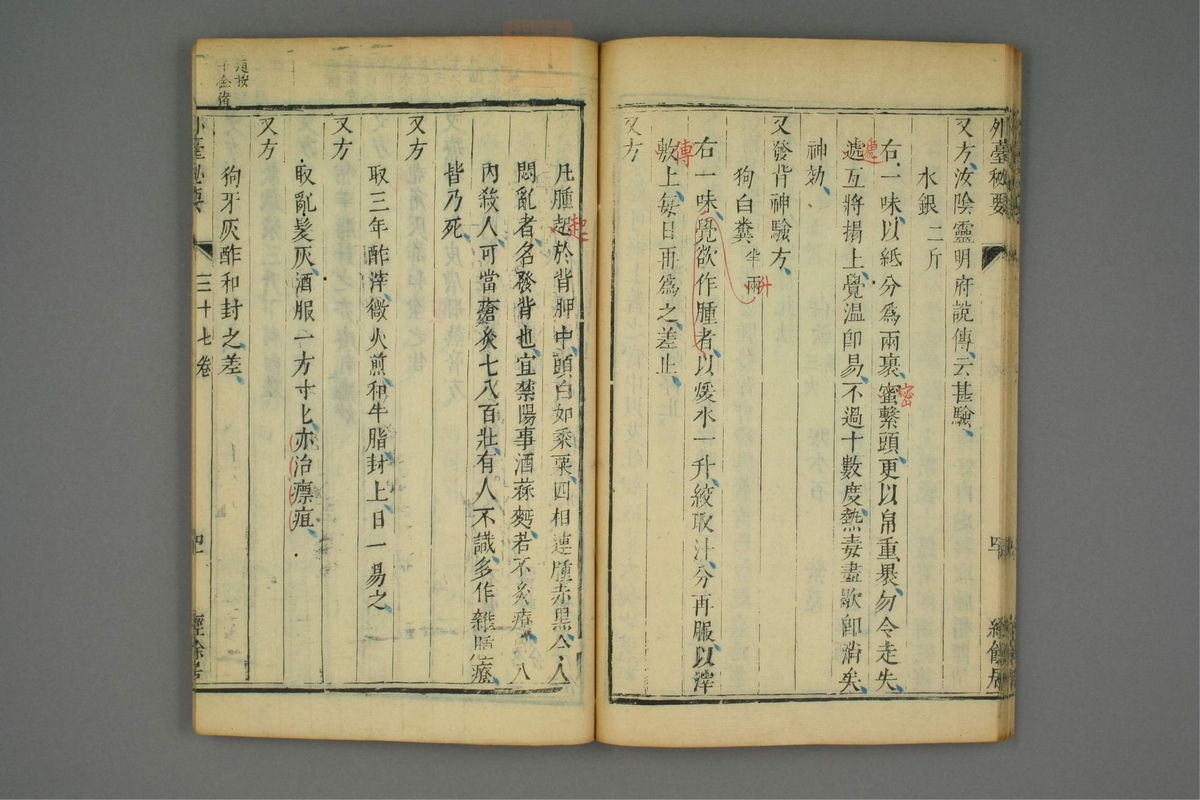 外臺秘要
又方汝陰靈明府說傳云甚驗
水銀二斤
右一味以紙分爲兩裹蜜繫頭更以帛重褁勿令走失
密
遞互將搨上覺溫卽易不過十數度熱毒盡歇卽消矣
神効
又發背神驗方
狗白糞半兩
升
右一味覺欲作腫者以煖水一升絞取汁分再服以滓
傅
敷上每日再爲之差止
又方
凡腫起於背胛中頭白如黍粟四相連腫赤黑令人
起
悶亂者名發背也宜禁陽事酒蒜麪若不灸療 入
內殺人可當瘡灸七八百壯有人不識多作雜腫療
皆乃死
又方
取三年酢滓微火煎和牛脂封上日一易之
又方
取亂髮灰酒服一方寸匕亦治瘭疽
又方
狗牙灰酢和封之差
外臺秘要
三十七卷
經餘居